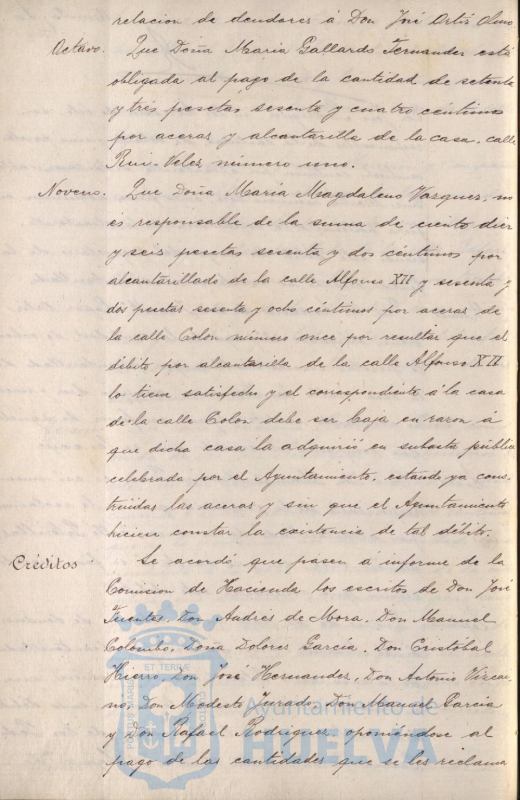 relacion de deudores á Don José Ortiz Olmo
Octavo. Que Doña María Gallardo Fernandez está
obligada al pago de la cantidad de setenta
y tres pesetas sesenta y cuatro céntimos
por aceras y alcantarilla de la casa, calle
Rui-Velez número uno.
Noveno. Que Doña María Magdalena Vazquez, no
es responsable de la suma de ciento diez
y seis pesetas sesenta y dos céntimos por
alcantarillado de la calle Alfonso XII y sesenta y
dos pesetas sesenta y ocho céntimos por aceras de
la calle Colon número once por resultar que el
débito por alcantarilla de la calle Alfonso XII
lo tiene satisfecho y el correspondiente á la casa
de la calle Colon debe ser baja en razon á
que dicha casa la adquirió en subasta pública
celebrada por el Ayuntamiento, estando ya cons-
truidas las aceras y sin que el Ayuntamiento
hiciese constar la existencia de tal débito.
Créditos Se acordó que pasen á informe de la
Comision de Hacienda los escritos de Don José
Fuentes, Don Andrés de Mora, Don Manuel
Colombo, Doña Dolores García, Don Cristóbal
Hierro, Don José Hernandez, Don Antonio Vizcai-
no, Don Modesto Jurado, Don Manuel Garcia
y Don Rafael Rodriguez, oponiéndose al
pago de las cantidades que se les reclama
PORTUS MARIS ET TERRÆ CUSTODIA
Ayuntamiento de
HUELVA